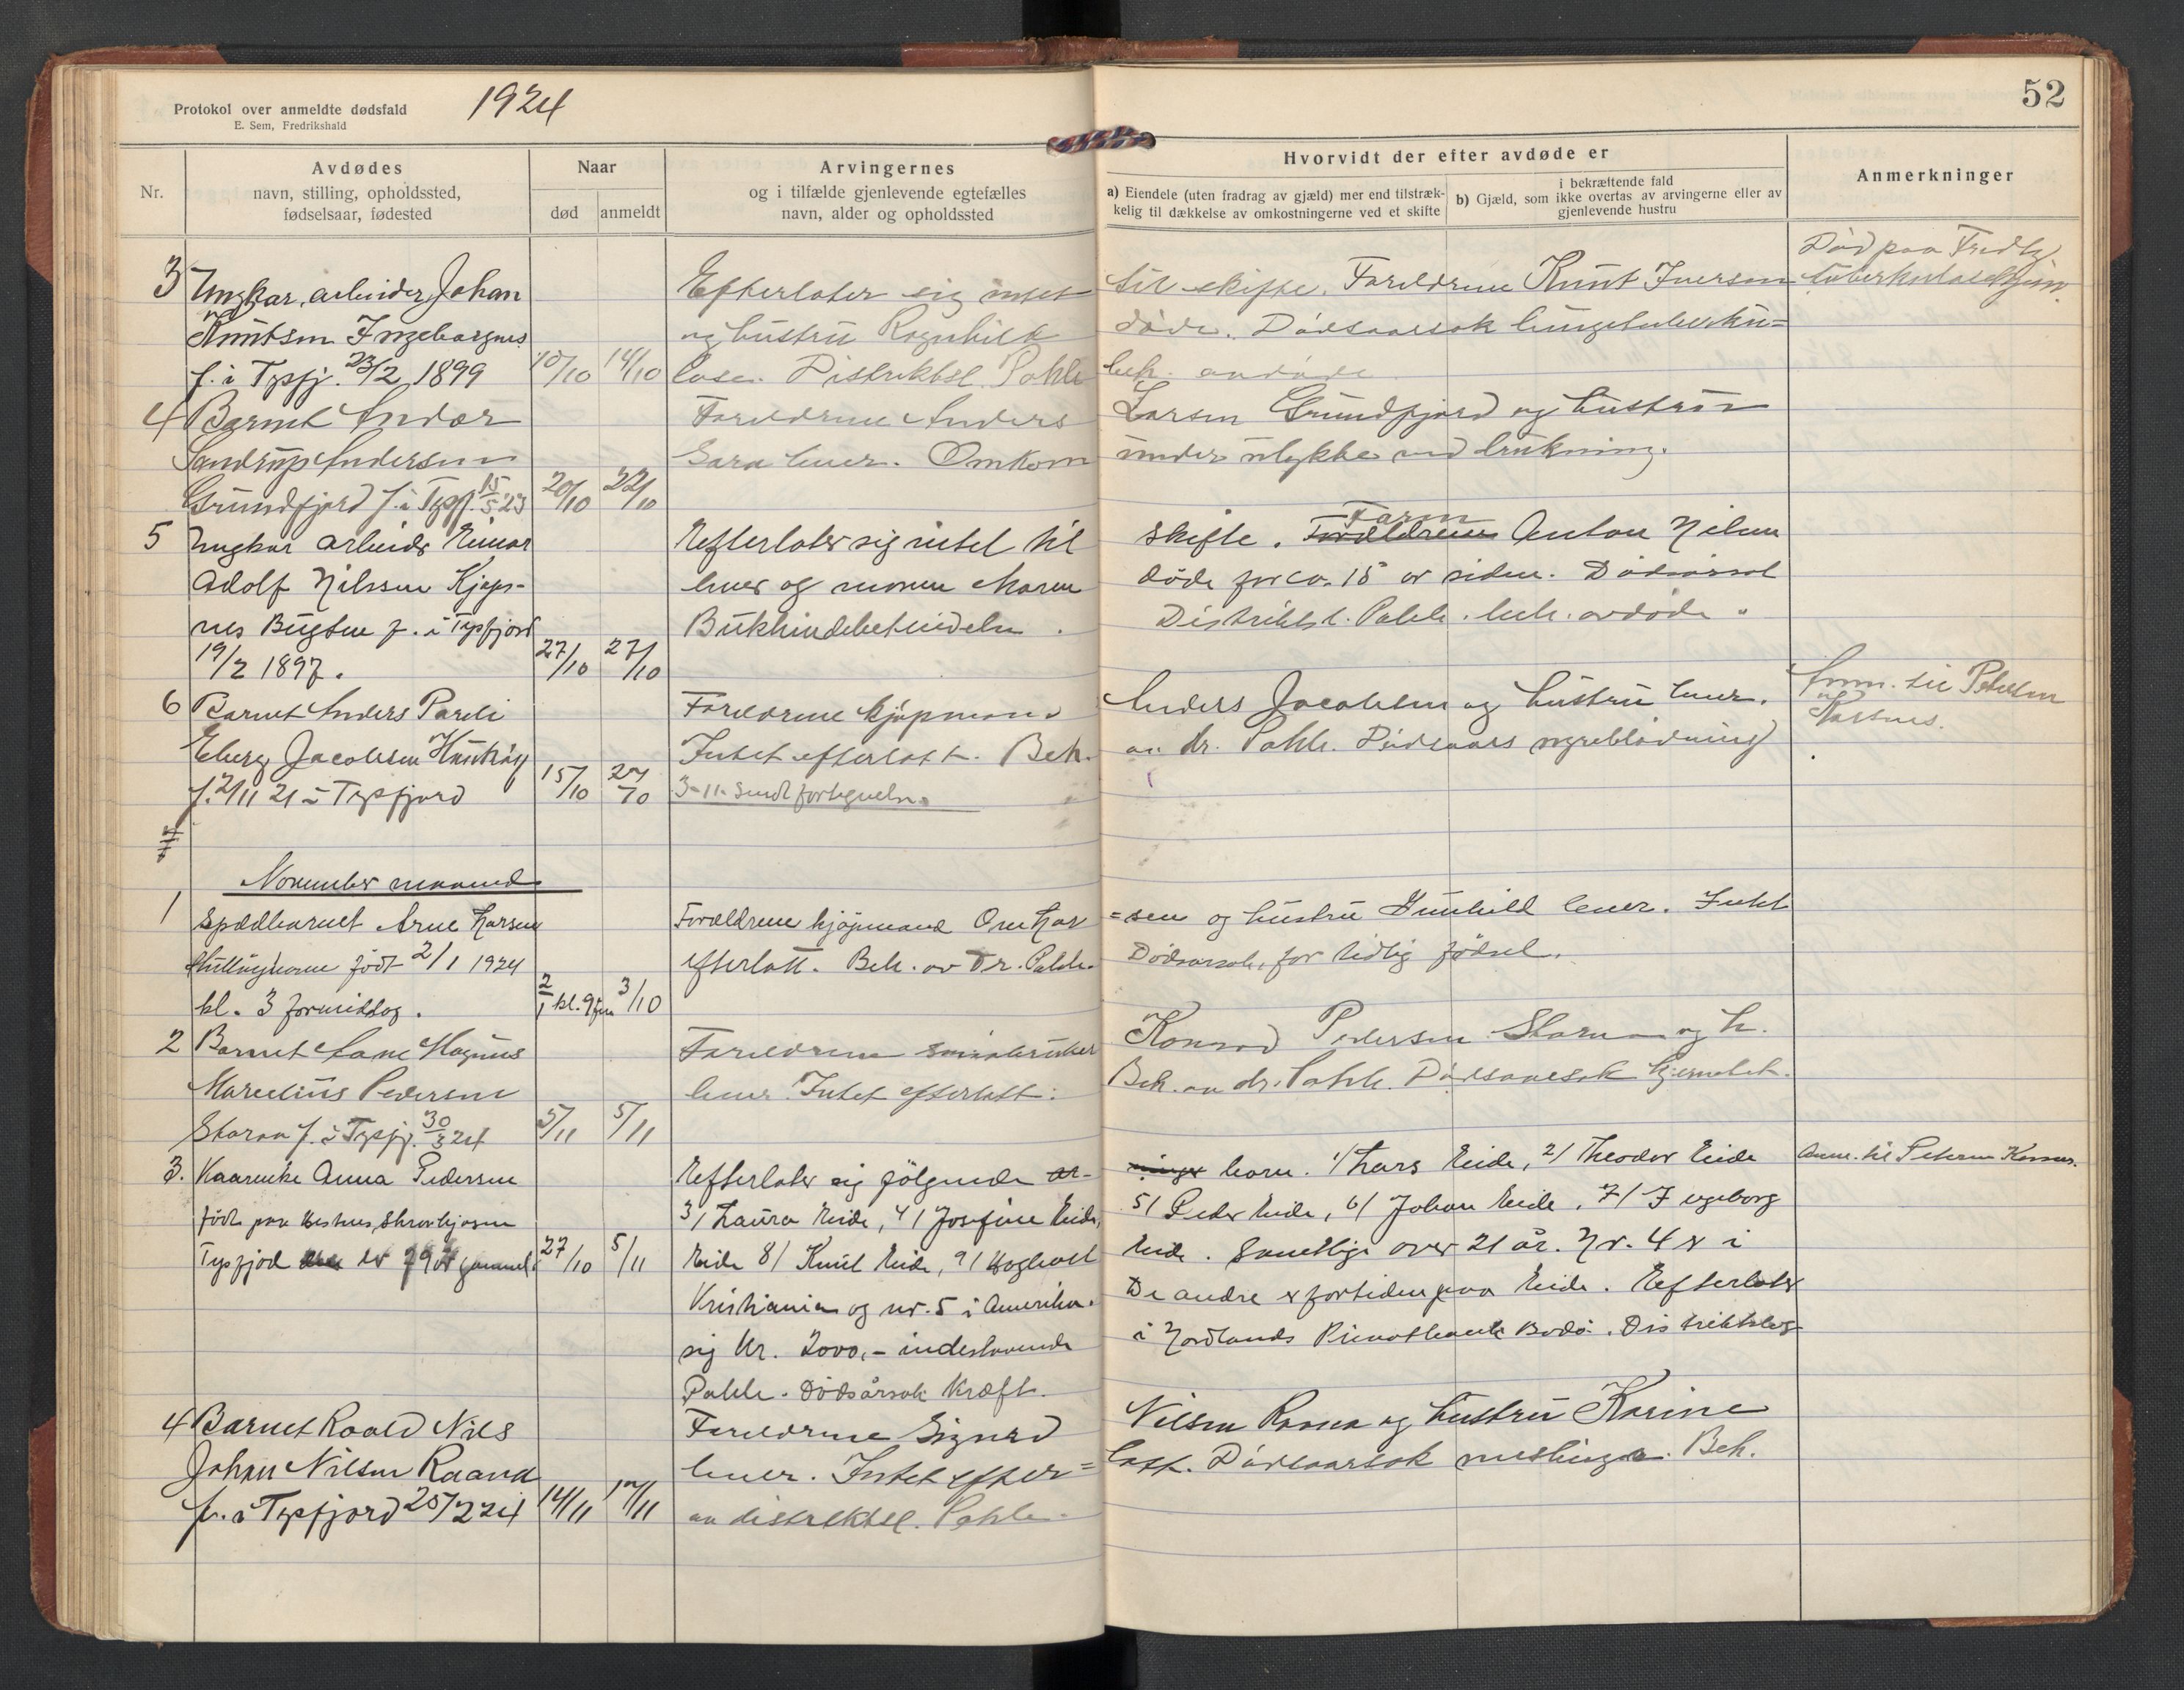 52
Protokol over anmeldte dødsfald
E. Sem, Fredrikshald
1924
Nr.
Avdødes
navn, stilling, opholdssted,
fødselsaar, fødested
Naar
død
anmeldt
Arvingernes
og i tilfælde gjenlevende egtefælles
navn, alder og opholdssted
Hvorvidt der efter avdøde er
a) Eiendele (uten fradrag av gjæld) mer end tilstræk-
kelig til dækkelse av omkostningerne ved et skifte
i bekræftende fald
b) Gjæld, som ikke overtas av arvingerne eller av
gjenlevende hustru
Anmerkninger
3 Ungkar, arbeider Johan
Knutsen Ingeborgnes
f. i Tysfj. 23/2 1899
10/10 14/10
Efterlater sig intet til skifte. Forældrene Knut Iversen
og hustru Ragnhild døde. Dødsaarsak lungetuberku=
lose. Distriktsl. Pahle beh. avdøde
Død paa Fredly
tuberkulosehjem.
4 Barnet Andor
Sandrup Andersen
Grundfjord f. i Tysfj. 15/5 23
20/10 22/10
Forældrene Anders Larsen Grundfjord og hustru
Sara lever. Omkom under ulykke ved drukning.
5 Ungkar arbeider Einar
Adolf Nilssen Kjøps-
nes Bugten f. i Tysfjord
19/2 1897.
27/10 27/10
Efterlater sig intet til skifte. Forældrene Faren Anton Nilsen
lever og moren Maren døde for ca. 15 år siden. Dødsårsak
Bukhindebetændelse. Distriktsl. Pahle beh. avdøde.
6 Barnet Anders Pareli
Eberg Jacobsen
f. 2/11 21 i Tysfjord
15/10 27/10
Forældrene kjøpmand Anders Jacobsen og hustru lever.
Intet efterlatt. Beh. av dr. Pahle. Dødsaars nyreblødning
3-11. Sendt fortegnelse.
Anm. til Petersen
Korsnes.
November maaned
1 Spædbarnet Arne Larsen
født 2/1 1924
kl. 3 formiddag.
2/1 kl. 9 fm 3/10
Forældrene kjøpmand Ove Lar =sen og hustru Gunhild lever. Intet
efterlatt. Beh. av Dr. Pahle. Dødsarsak, for tidlig fødsel.
2 Barnet Lane Magnus
Marelius Pedersen
Storaa f. i Tysfj. 30/3 24
5/11 5/11
Forældrene smaabruker Konrad Pedersen Storaa og h.
lever. Intet efterlatt. Beh. av dr. Pahle. Dødsaarsak hjernebet.
3. Kaarenke Anna Pedersen
født paa
Tysfjord er 79 år gammel.
27/10 5/11
Efterlater sig følgende ar- vinger barn. 1/ Lars Eide, 2/ Theodor Eide
3/ Laura Eide, 4/ Josefine Eide, 5/ Peder Eide, 6/ Johan Eide, 7/ Ingeborg
Eide 8/ Knut Eide, 9/ Eide. Samtlige over 21 år. Nr. 4 er i
Kristiania og nr. 5 i Amerika. De andre er fortiden paa Eide. Efterlater
sig Kr. 2000,- indestaaende i Nordlands Privatbank Bodø. Distriktslæg
Pahle. Dødsårsak Kræft.
Anm. til Petersen Korsnes.
4 Barnet Roald Nils
Johan Nilsen Raana
f. i Tysfjord 25/2 24
14/11 17/11
Forældrene Sigurd Nilsen Raana og hustru Karine
lever. Intet efter= latt. Dødsaarsak meslinger. Beh.
av distriktsl. Pahle.